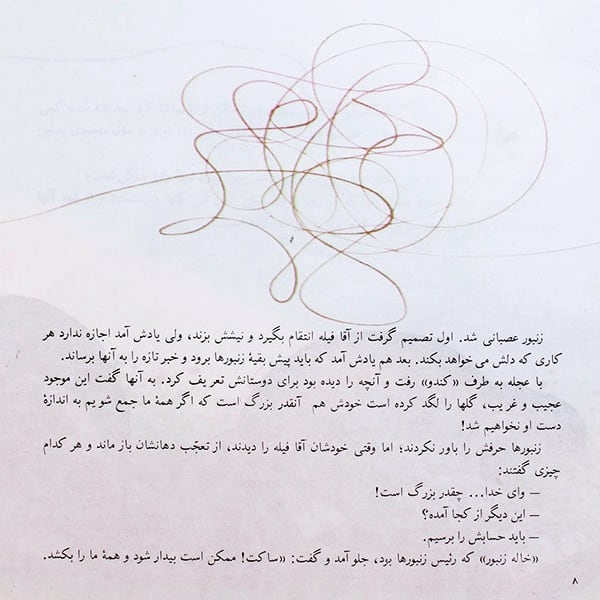 زنبور عصبانی شد. اول تصمیم گرفت از آقا فیله انتقام بگیرد و نیشش بزند، ولی یادش آمد اجازه ندارد هر
کاری که دلش می‌خواهد بکند. بعد هم یادش آمد که باید پیش بقیهٔ زنبورها برود و خبر تازه را به آنها برساند.
با عجله به طرف «کندو» رفت و آنچه را دیده بود برای دوستانش تعریف کرد. به آنها گفت این موجود
عجیب و غریب، گلها را لگد کرده است خودش هم آنقدر بزرگ است که اگر همهٔ ما جمع شویم به اندازهٔ
دست او نخواهیم شد!
زنبورها حرفش را باور نکردند؛ اما وقتی خودشان آقا فیله را دیدند، از تعجّب دهانشان باز ماند و هر کدام
چیزی گفتند:
— وای خدا... چقدر بزرگ است!
— این دیگر از کجا آمده؟
— باید حسابش را برسیم.
«خاله زنبور» که رئیس زنبورها بود، جلو آمد و گفت: «ساکت! ممکن است بیدار شود و همهٔ ما را بکشد.
۸